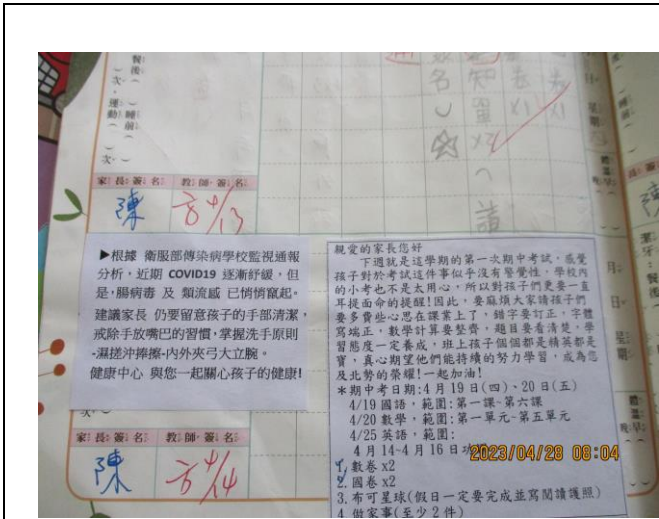 餐後
次，運動
睡前
次
名知卷卷
單 X1 X1
X2
請
家長簽名 教師簽名
陳 4/13
▶根據 衛服部傳染病學校監視通報
分析，近期 COVID19 逐漸紓緩，但
是，腸病毒 及 類流感 已悄悄竄起。
建議家長 仍要留意孩子的手部清潔，
戒除手放嘴巴的習慣，掌握洗手原則
-濕搓沖捧擦-內外夾弓大立腕。
健康中心 與您一起關心孩子的健康!
親愛的家長您好
下週就是這學期的第一次期中考試，感覺
孩子對於考試這件事似乎沒有警覺性，學校內
的小考也不是太用心，所以對孩子們更要一直
耳提面命的提醒!因此，要麻煩大家請孩子們
要多費些心思在課業上了，錯字要訂正，字體
寫端正，數學計算要整齊，題目要看清楚，學
習態度一定養成，班上孩子個個都是精英都是
寶，真心期望他們能持續的努力學習，成為您
及北勢的榮耀!一起加油!
*期中考日期:4月19日(四)、20日(五)
4/19 國語，範圍:第一課~第六課
4/20 數學，範圍:第一單元~第五單元
4/25 英語，範圍:
4月14~4月16日功
1.數卷 x2
2.國卷 x2
3.布可星球(假日一定要完成並寫閱讀護照)
4.做家事(至少2件)
家長簽名 教師簽名
陳 4/14
月
日
星期
體溫
早
晚
潔牙
餐後
睡前
2023/04/28 08:04